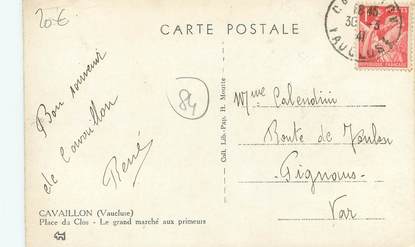 20€
CARTE POSTALE
18 45
30 -3
41
VAUCLUSE
POSTES
RÉPUBLIQUE FRANÇAISE
Bon souvenir
de Cavaillon
René
84
Coll. Lib.-Pap. H. Moutte
Mme Calendini
Route de Toulon
Gignous
Var
CAVAILLON (Vaucluse)
Place du Clos - Le grand marché aux primeurs